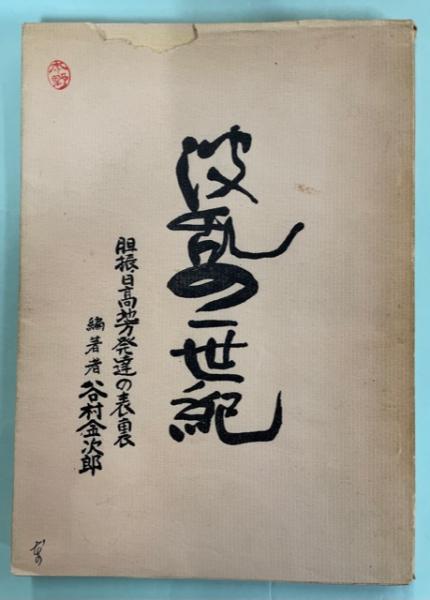 波乱の一世紀
胆振・日高地方発達の表裏
編著者 谷村金次郎